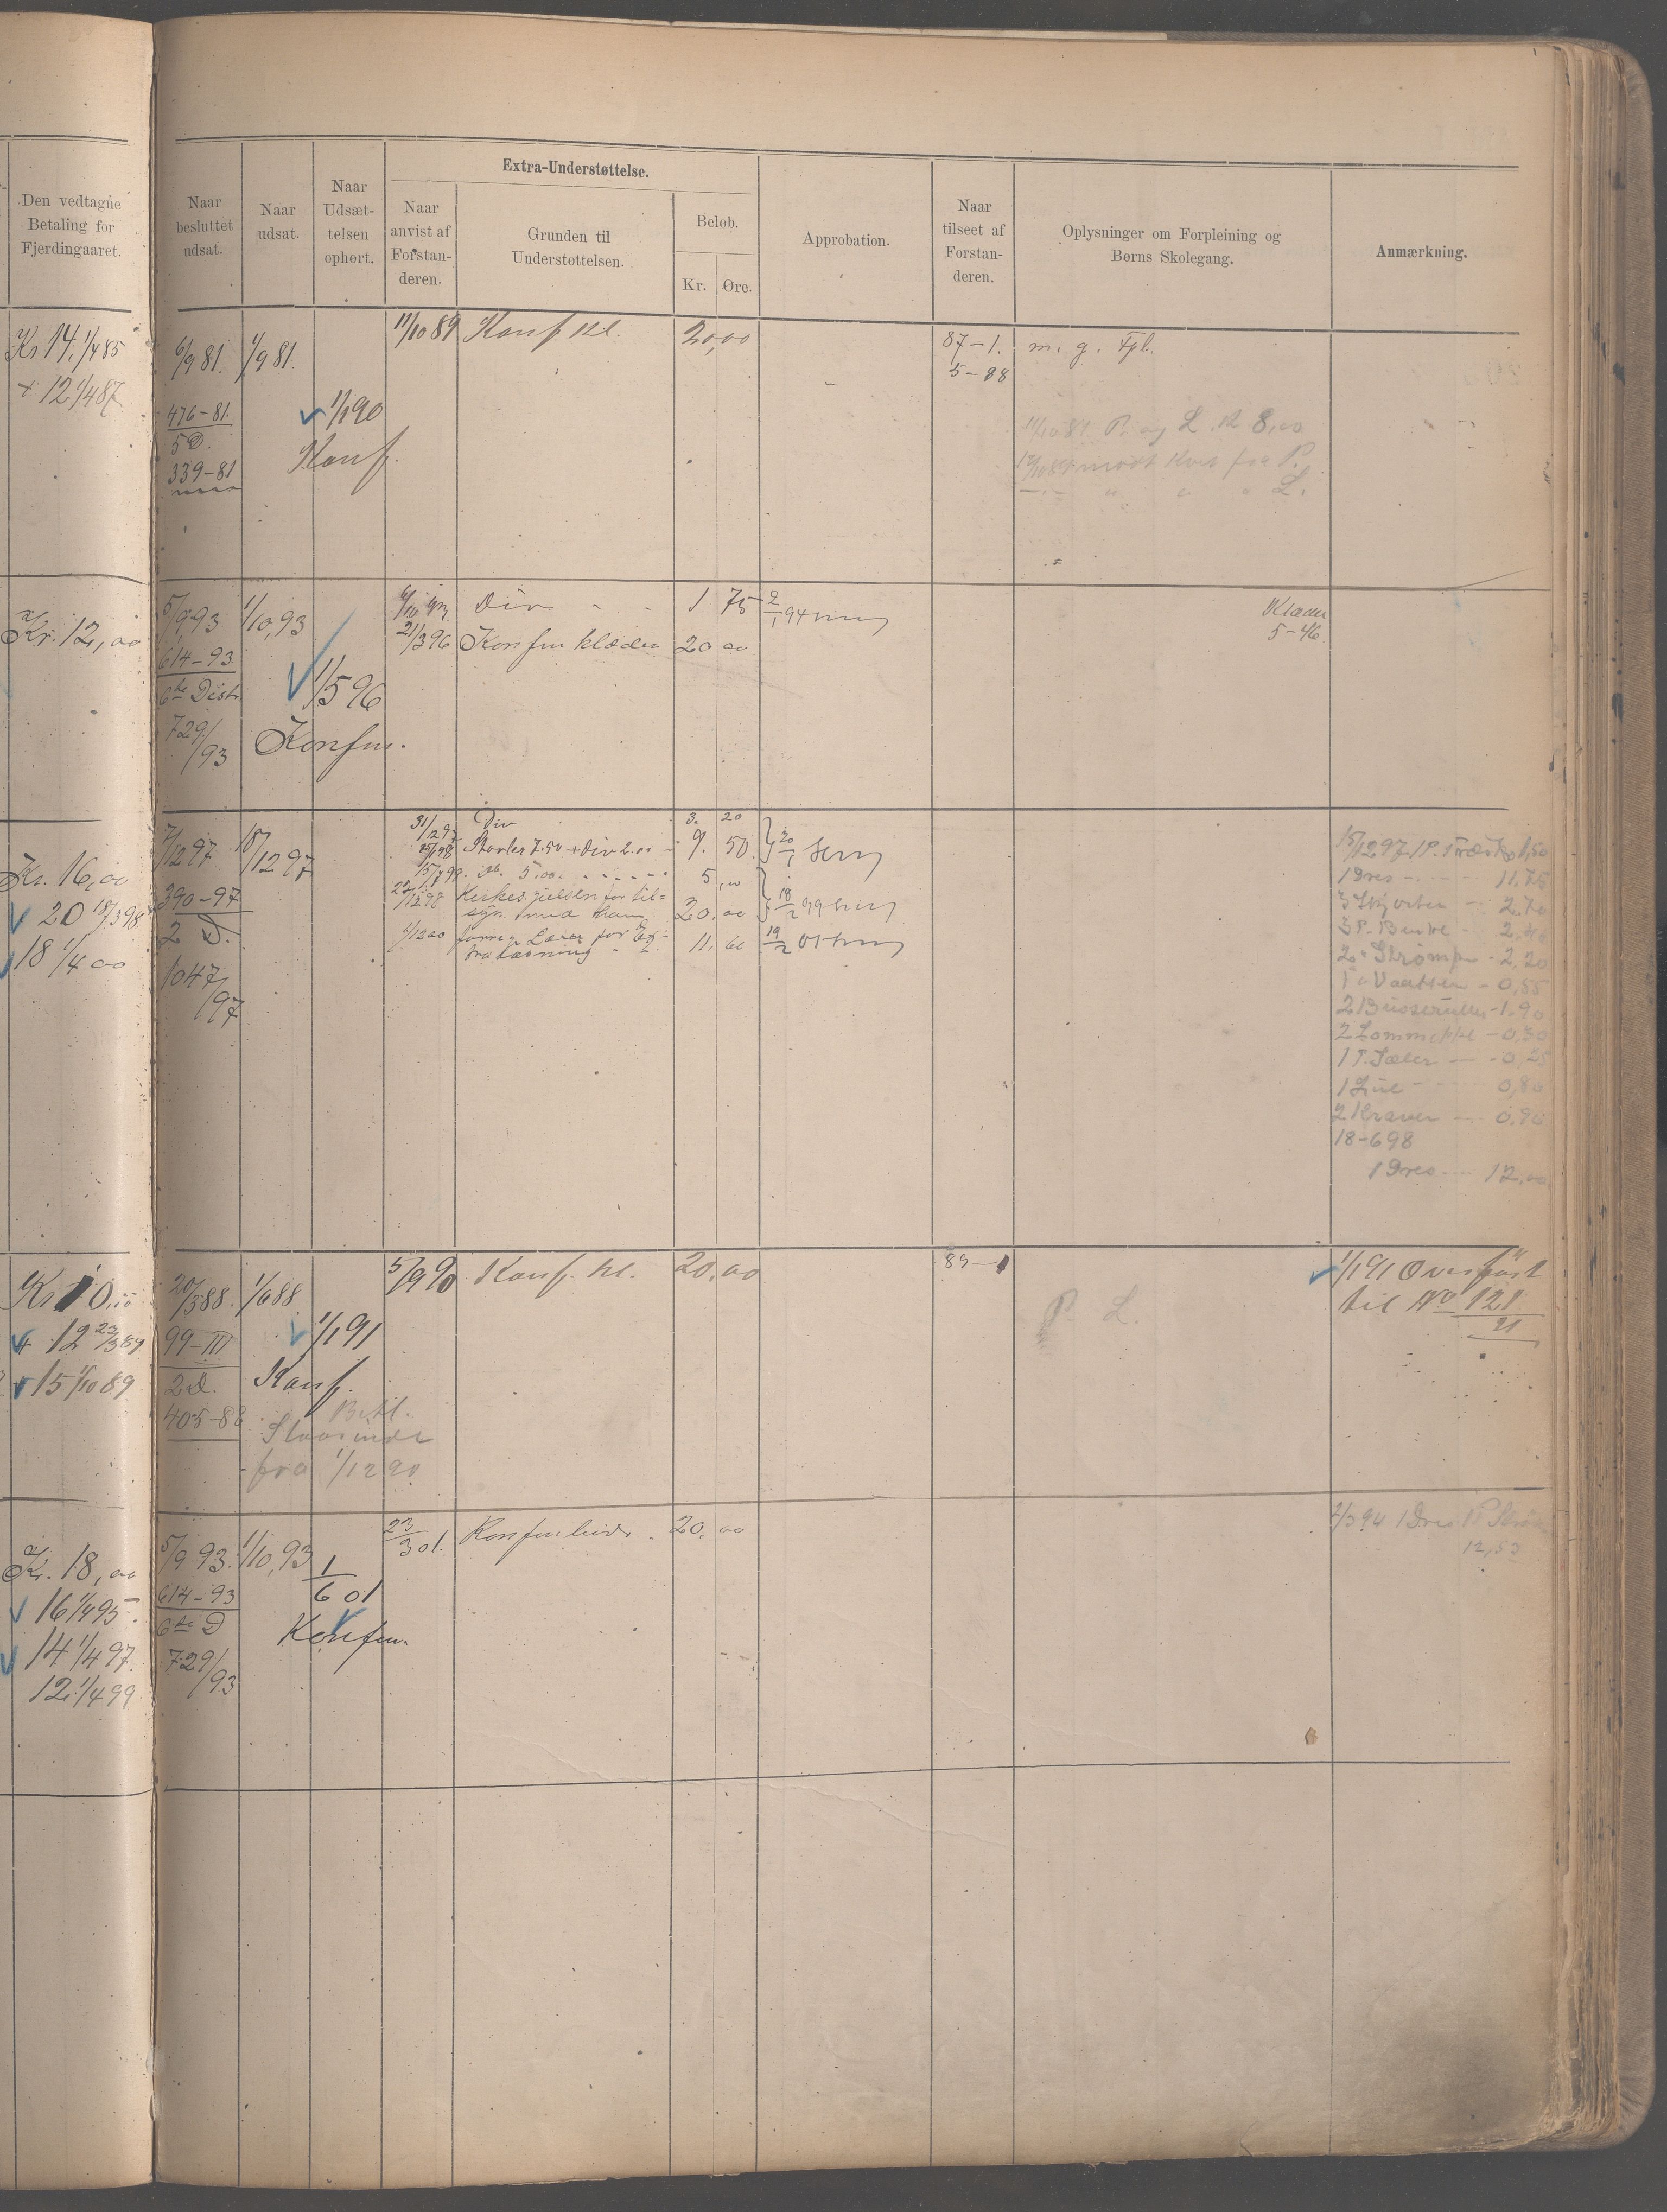 Den vedtagne
Betaling for
Fjerdingaaret.
Naar
besluttet
udsat.
Naar
udsat.
Naar
Udsæt-
telsen
ophørt.
Extra-Understøttelse.
Naar
anvist af
Forstan-
deren.
Grunden til
Understøttelsen.
Beløb.
Kr.
Øre.
Approbation.
Naar
tilseet af
Forstan-
deren.
Oplysninger om Forpleining og
Børns Skolegang.
Anmærkning.
Kr 14, 1/4 85
+ 12 1/4 87
6/9 81.
1/9 81.
476-81.
5 D.
339-81
1/1 90
Konf.
11/10 89 Konf kl. 20,00
87-1. m. g. Fpl.
5-88
11/10 89 P. og L. 8,00
Kr. 12,00
5/9 93
1/10 93
614-93
6te Distr.
729/93
1/5 96
Konfm.
Div 1 75 2/1 94
21/3 96 Konfm klæder 20 00
Klæder
5-46
Kr. 16,00
20 18/3 98
18 1/4 00
7/12 97
18/12 97
390-97
2 D.
1047/97
31/12 97 Div 3. 20
Støvler 7.50 + div 2.00 9. 50 20/1
15/1 99 5.00 5,00
22/12 98 for til=
syn med ham 20,00 18/2 99
1/12 00 Lærer for Ex-
tra læsning 11. 60 19/2 01
15/12 97 1 P. Træsko 1,50
1 Dres 11.75
3 Skjorter 2.70
3 P. Buxe 2.40
2 " Strømper - 2,20
1 " Vaatter - 0,55
2 Busseruller - 1.90
2 Lommetkl - 0,30
1 P. Sæler - 0,25
1 Lue 0,80
2 Kraver 0.90
18-6 98
1 Dres 12,00
Kr 10,00
+ 12 23/3 89
+ 15 1/10 89
20/5 88.
1/6 88
99-III
2 D.
405-88
1/1 91
Konf.
Betl.
fra 1/12 90
5/9 90 Konf. kl. 20,00
89-1
P. L.
1/1 91 Overført
til No 121
21
Kr. 18,00
16 1/4 95
14 1/4 97.
12. 1/4 99
5/9 93.
1/10, 93
614-93
6te D
729/93
1/6 01
Konfm.
23/3 01. 20,00
2/3 94 1 Dres 1 P
12,50